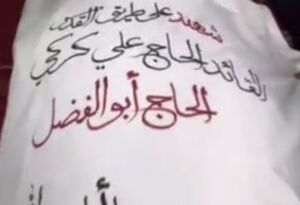 شهيد على طريق القدس
القائد الحاج علي كركي
الحاج أبو الفضل